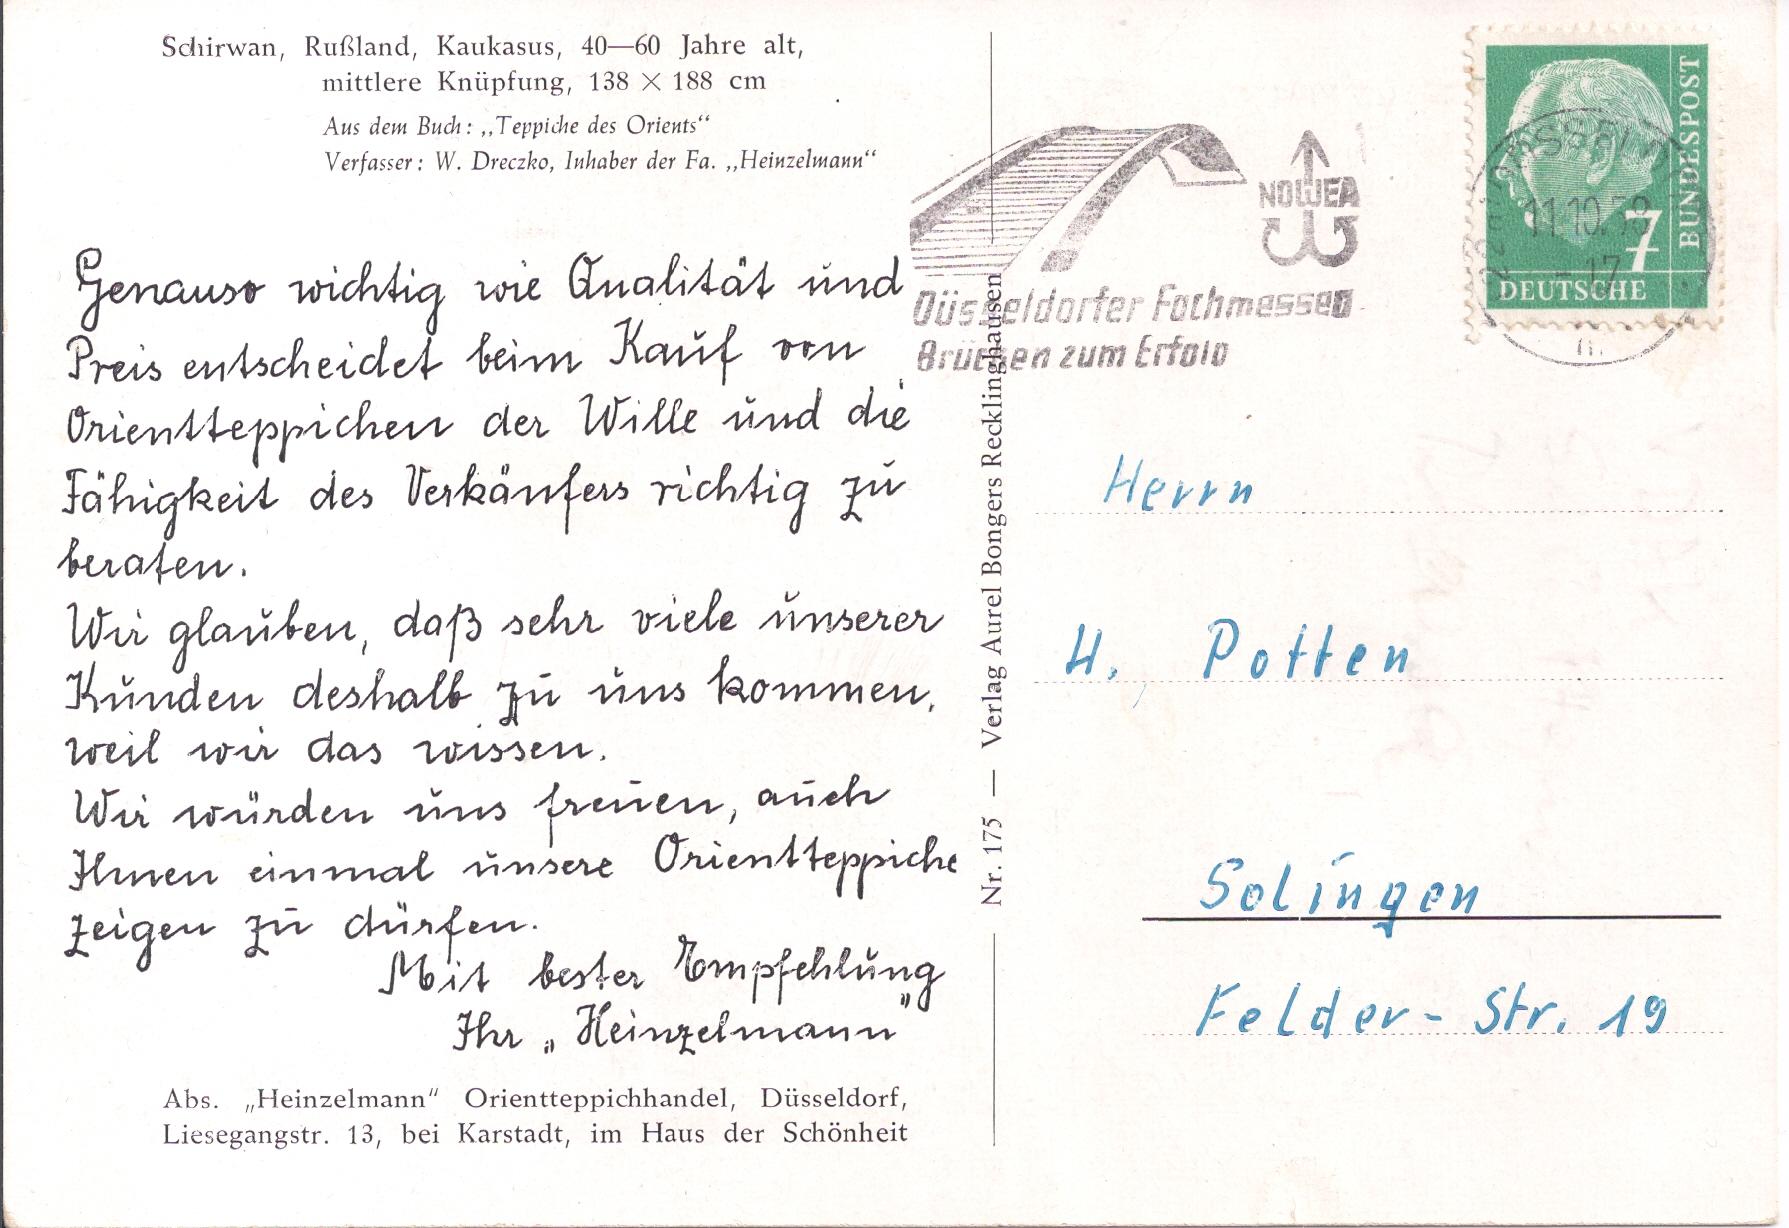 Schirwan, Rußland, Kaukasus, 40—60 Jahre alt,
mittlere Knüpfung, 138 × 188 cm
Aus dem Buch: „Teppiche des Orients“
Verfasser: W. Dreczko, Inhaber der Fa. „Heinzelmann“
Genauso wichtig wie Qualität und
Preis entscheidet beim Kauf von
Orientteppichen der Wille und die
Fähigkeit des Verkäufers richtig zu
beraten.
Wir glauben, daß sehr viele unserer
Kunden deshalb zu uns kommen,
weil wir das wissen.
Wir würden uns freuen, auch
Ihnen einmal unsere Orientteppiche
zeigen zu dürfen.
Mit bester Empfehlung
Ihr „Heinzelmann“
Abs. „Heinzelmann“ Orientteppichhandel, Düsseldorf,
Liesegangstr. 13, bei Karstadt, im Haus der Schönheit
Nr. 175 — Verlag Aurel Bongers Recklinghausen
NOWEA
Düsseldorfer Fachmessen
Brücken zum Erfolg
DEUTSCHE
BUNDESPOST
7
11.10.58
-17
Herrn
H. Potten
Solingen
Felder-Str. 19